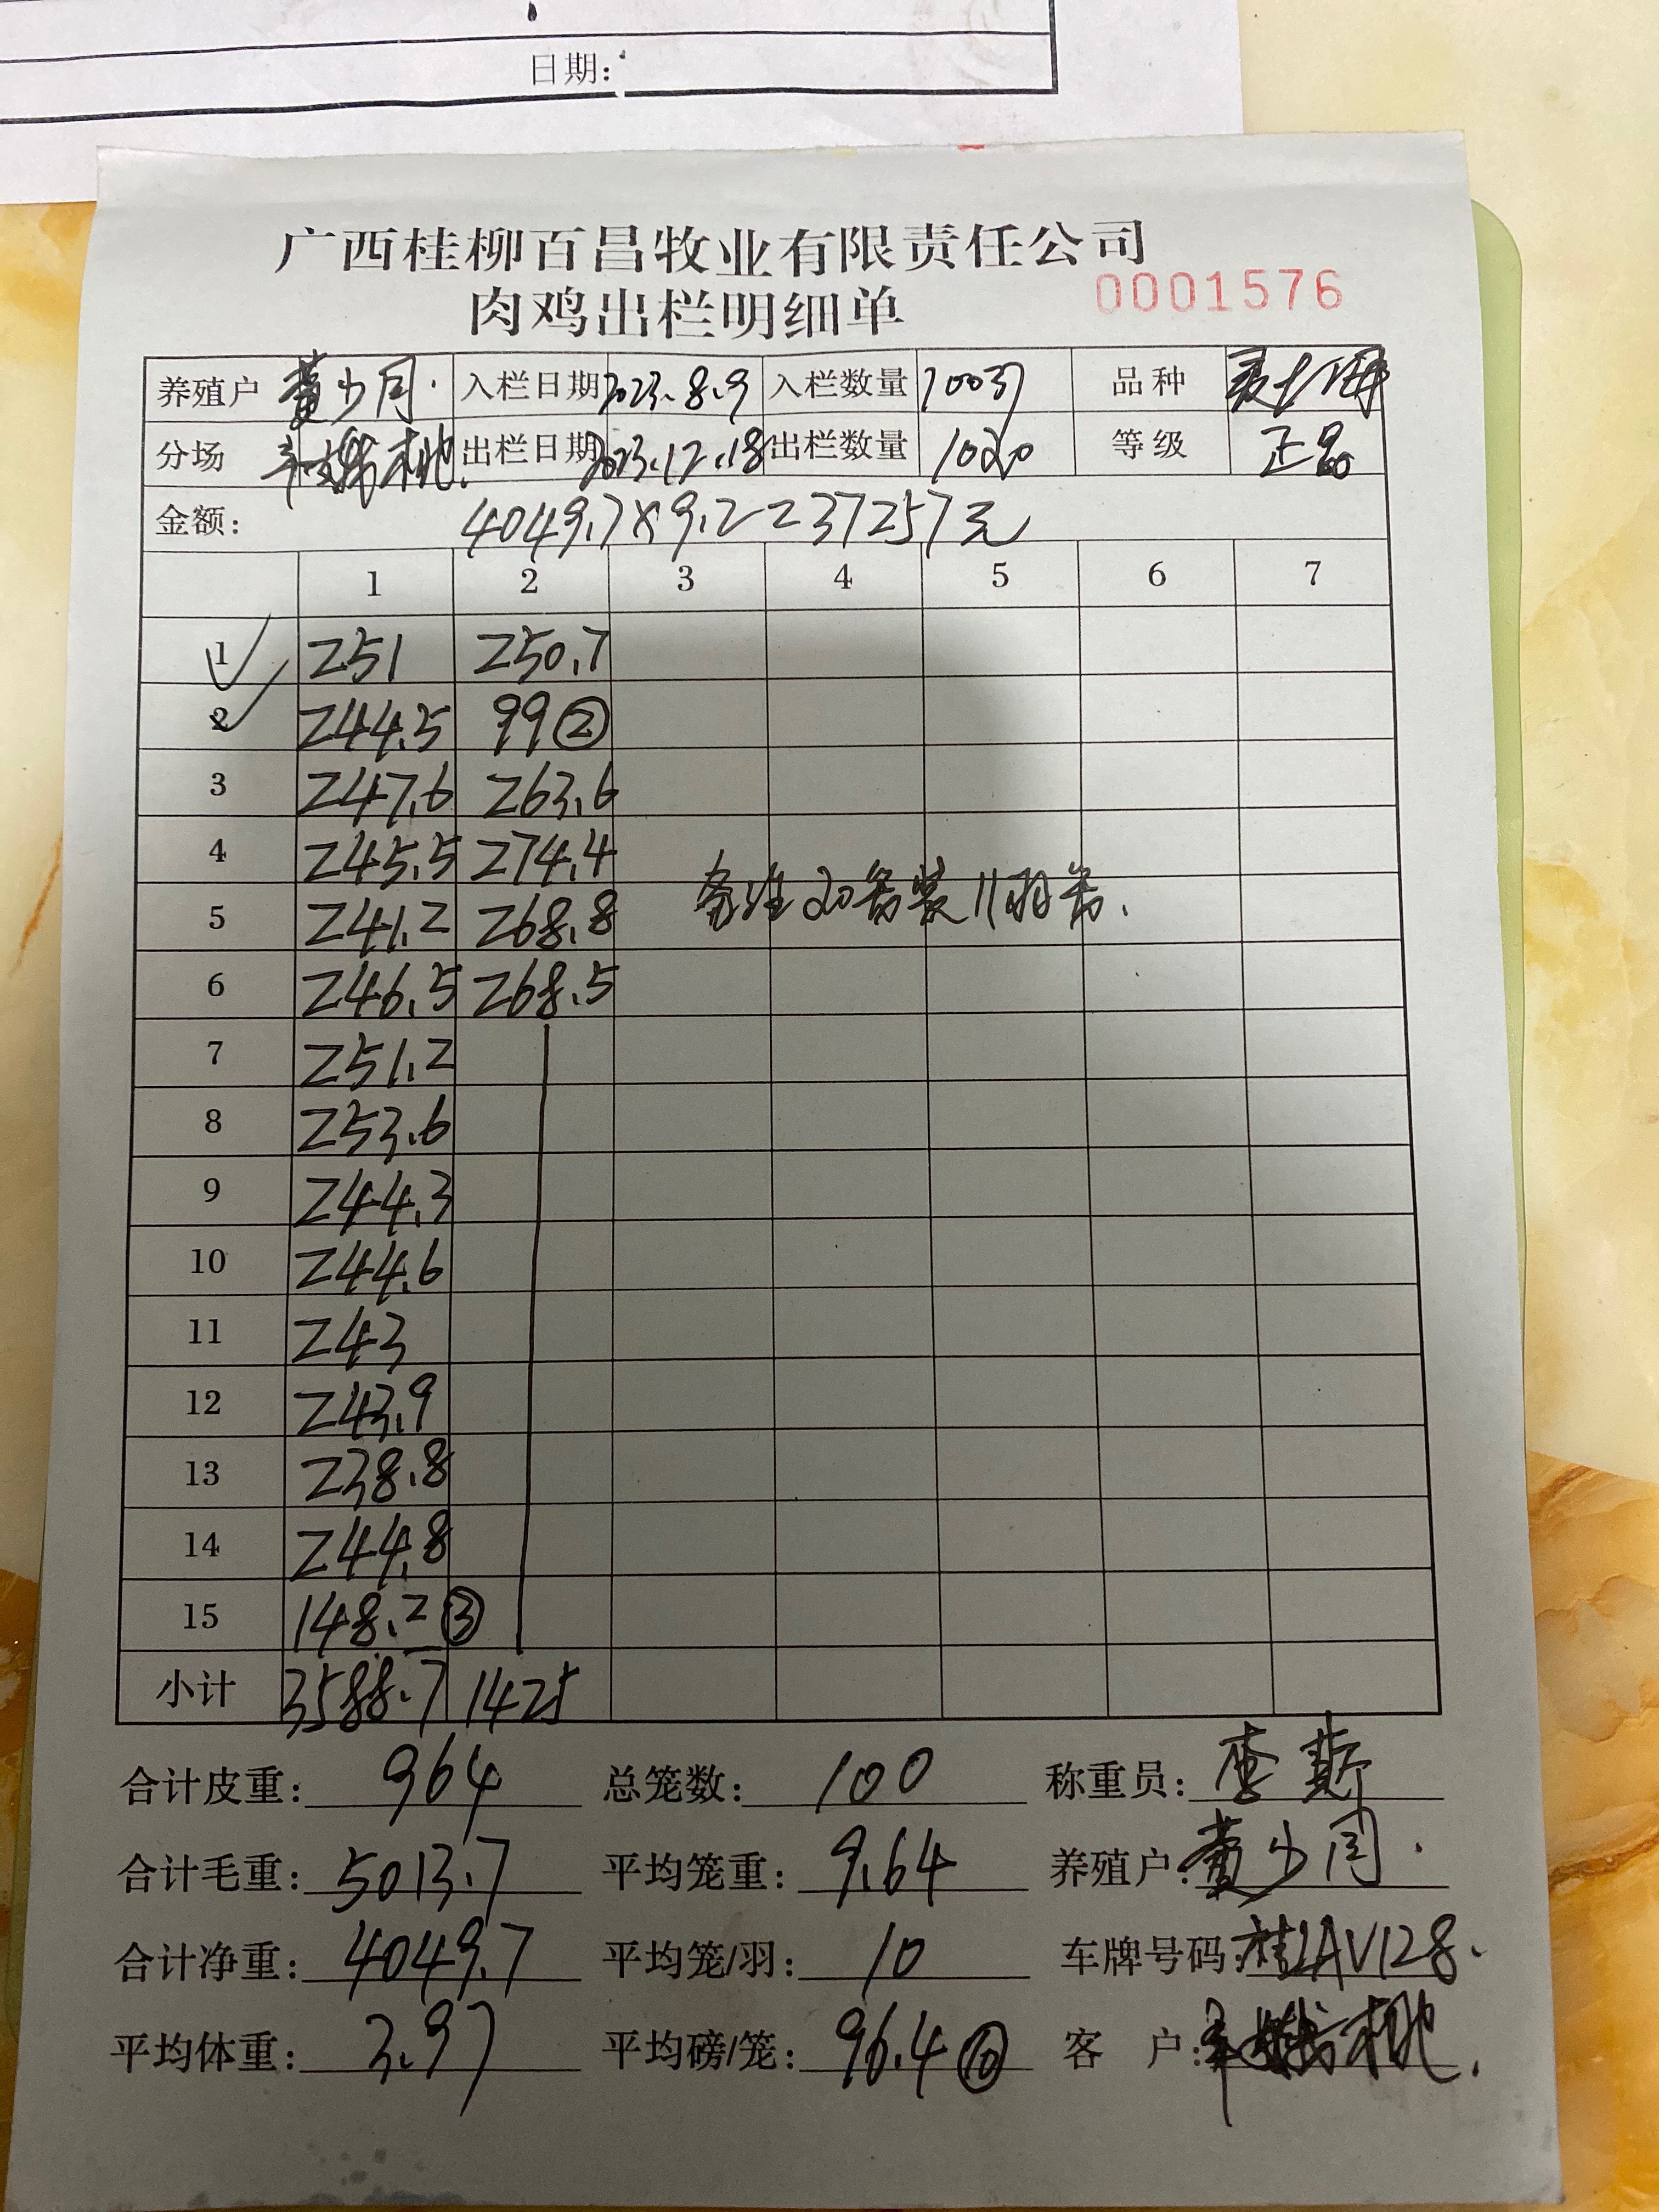 日期:
广西桂柳百昌牧业有限责任公司
肉鸡出栏明细单 0001576
养殖户 黄少同. 入栏日期 2023.8.9 入栏数量 10037 品种
分场 桃. 出栏日期 2023.12.18 出栏数量 1020 等级 正品
金额: 4049.7×9.2=37257元
1 2 3 4 5 6 7
1 251 250.7
2 244.5 99②
3 247.6 263.6
4 245.5 274.4
5 241.2 268.8 备注20客装11羽.
6 246.5 268.5
7 251.2
8 253.6
9 244.3
10 244.6
11 243
12 243.9
13 238.8
14 244.8
15 148.2③
小计 3588.7 1425
合计皮重: 964 总笼数: 100 称重员: 李
合计毛重: 5013.7 平均笼重: 9.64 养殖户: 黄少同.
合计净重: 4049.7 平均笼/羽: 10 车牌号码: 桂LAV128.
平均体重: 3.97 平均磅/笼: 96.4⑩ 客户: 桃.